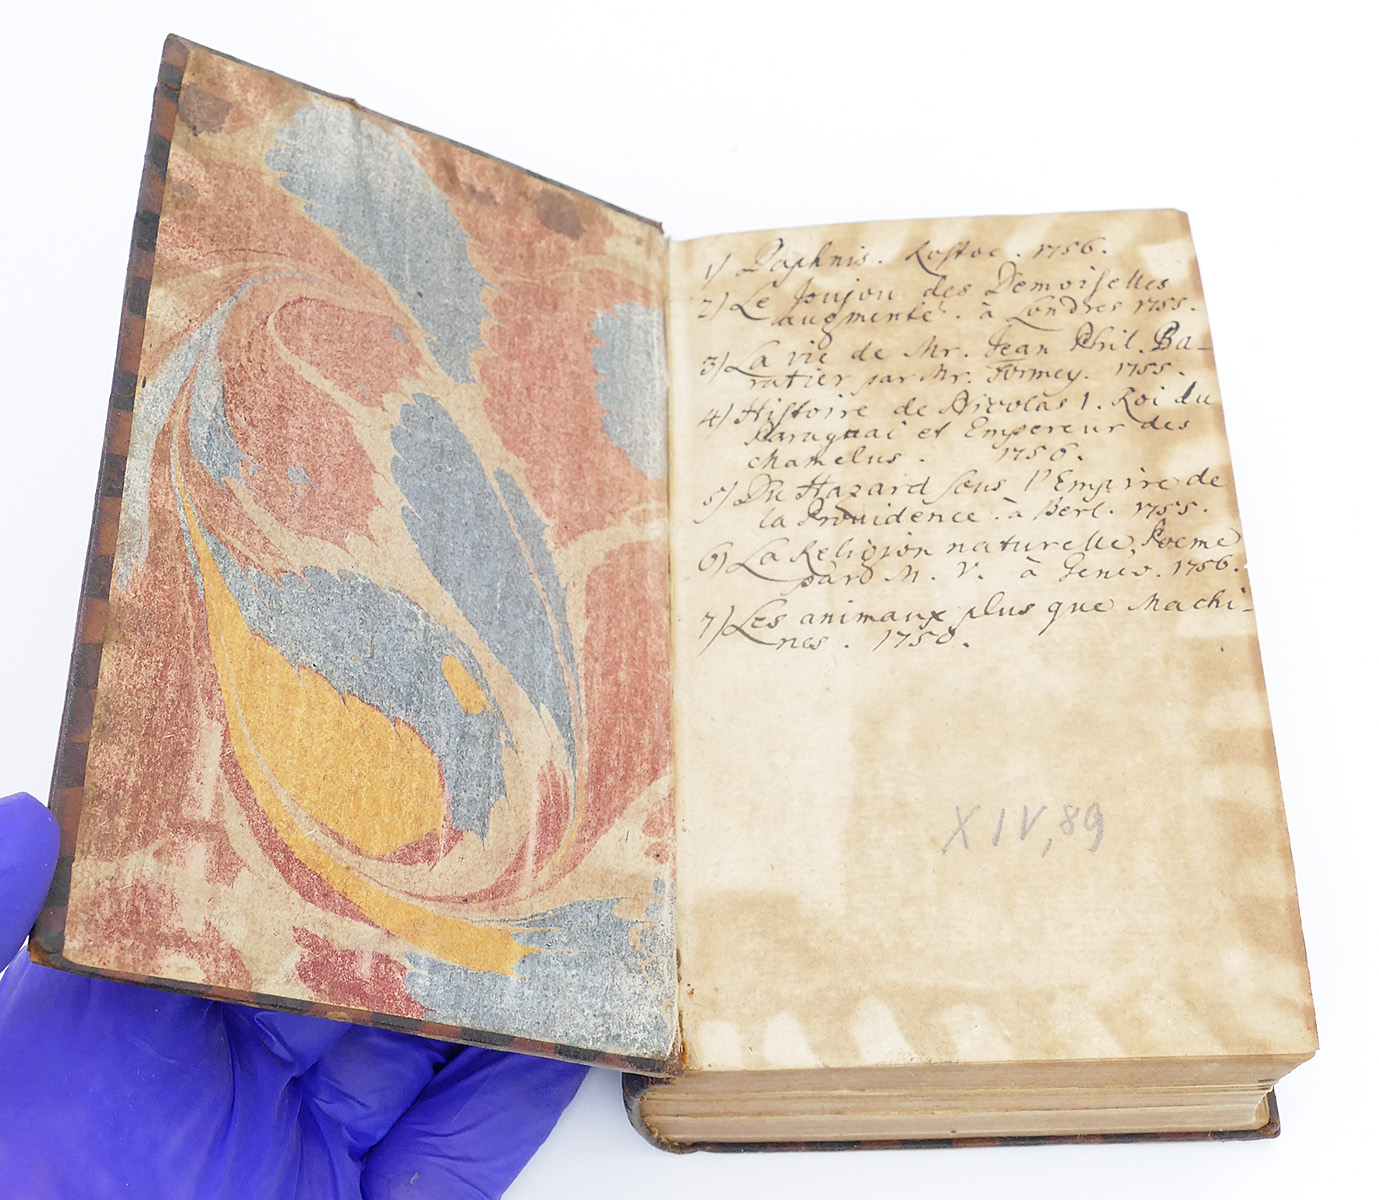 1) Daphnis. Rostoc. 1756.
2) Le Joujou des Demoiselles
augmenté. à Londres 1755.
3) La vie de Mr. Jean Phil. Ba-
ratier par Mr. Formey. 1755.
4) Histoire de Nicolas I. Roi du
Paraguai et Empereur des
Mamelus. 1756.
5) Du Hazard sous l'Empire de
la Providence. à Berl. 1755.
6) La Religion naturelle, Poeme
par M. V. à Genev. 1756.
7) Les animaux plus que Machi-
nes. 1750.
XIV, 89